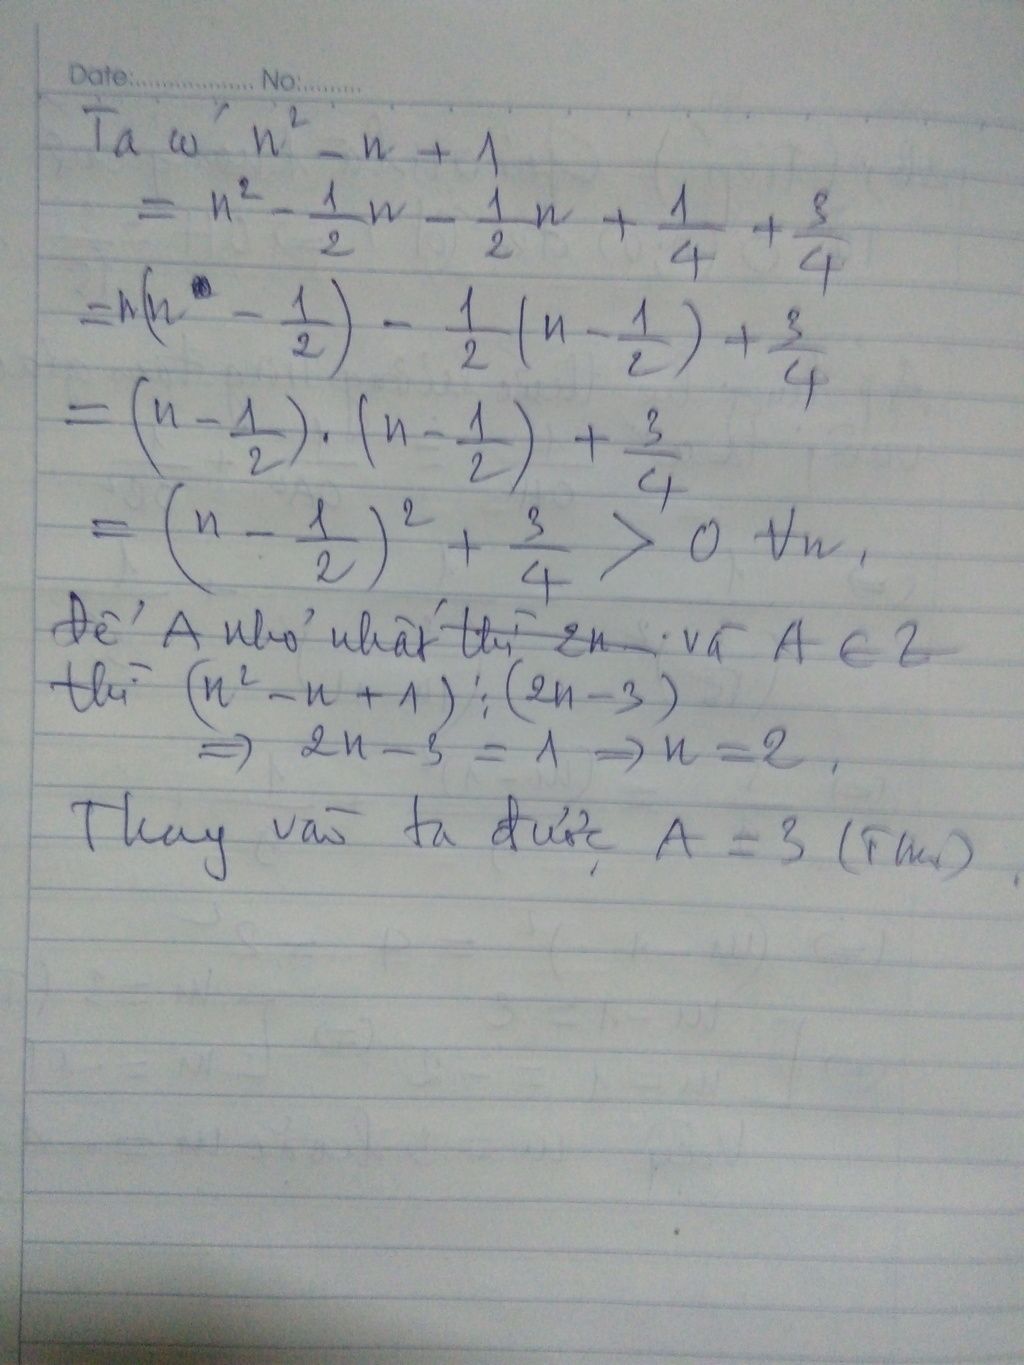 Date:.................. No:..........
Ta có n² - n + 1
= n² - 1/2 n - 1/2 n + 1/4 + 3/4
= n(n - 1/2) - 1/2 (n - 1/2) + 3/4
= (n - 1/2) . (n - 1/2) + 3/4
= (n - 1/2)² + 3/4 > 0 ∀n.
Để A nhỏ nhất thì 2n và A ∈ Z
thì (n² - n + 1) ⋮ (2n - 3)
⇒ 2n - 3 = 1 ⇒ n = 2.
Thay vào ta được A = 3